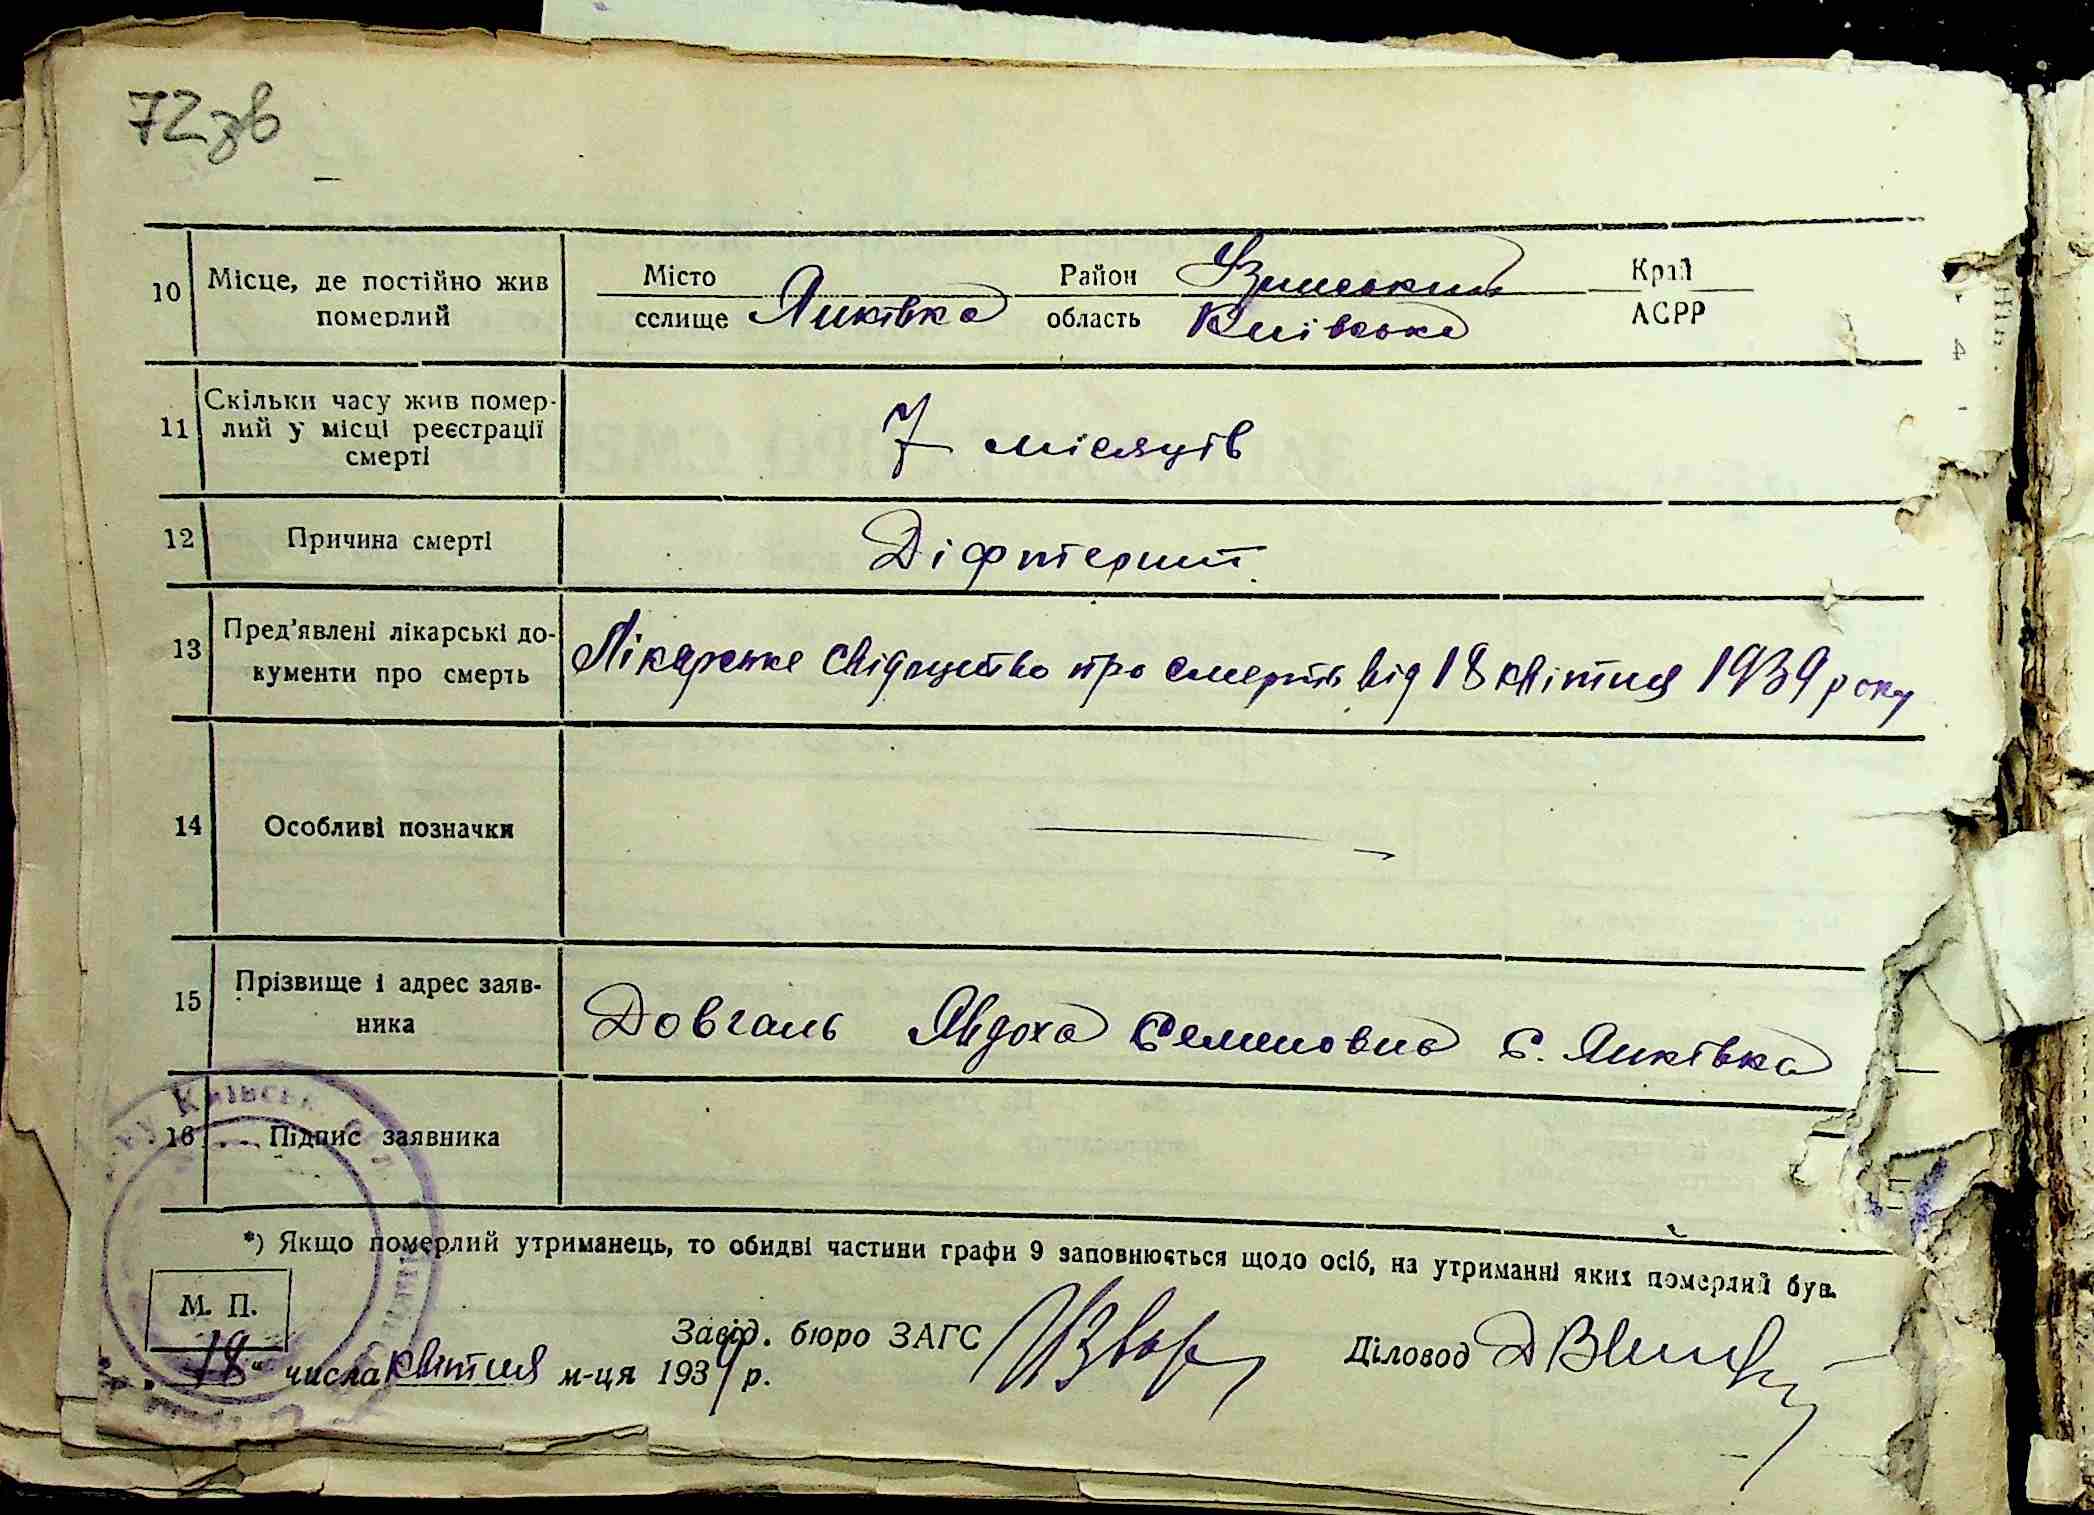 72зв
10 Місце, де постійно жив померлий
Місто Район Узинський Край
селище Янківка область Київська АСРР
11 Скільки часу жив помер-
лий у місці реєстрації
смерті
7 місяців
12 Причина смерті Діфтерит.
13 Пред'явлені лікарські до-
кументи про смерть
Лікарське свідоцтво про смерть від 18 квітня 1939 року
14 Особливі позначки —
15 Прізвище і адрес заяв-
ника
Довгаль Явдоха Семеновна с. Янківка
16 Підпис заявника
*) Якщо померлий утриманець, то обидві частини графи 9 заповнюється щодо осіб, на утриманні яких померлий був.
М. П.
Завід. бюро ЗАГС Діловод
"18" числа квітня м-ця 1939 р.